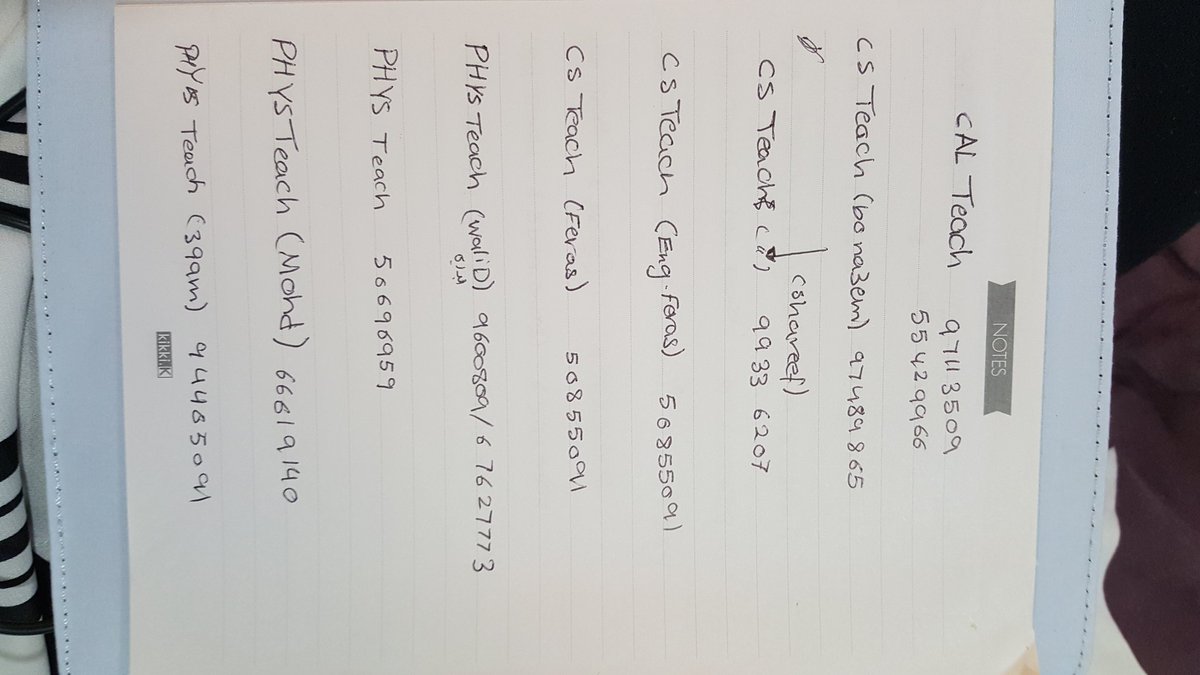 NOTES
CAL Teach 97113509
55429966
CS Teach (bo na3em) 97489865
(shareef)
CS Teach (") 9933 6207
CS Teach (Eng. Feras) 56855091
CS Teach (Feras) 50855091
PHYS Teach (waliD) 9600809/6 7627773
PHYS Teach 56696959
PHYS Teach (Mohd) 66619140
PHYS Teach (39am) 94465091
kikki.K